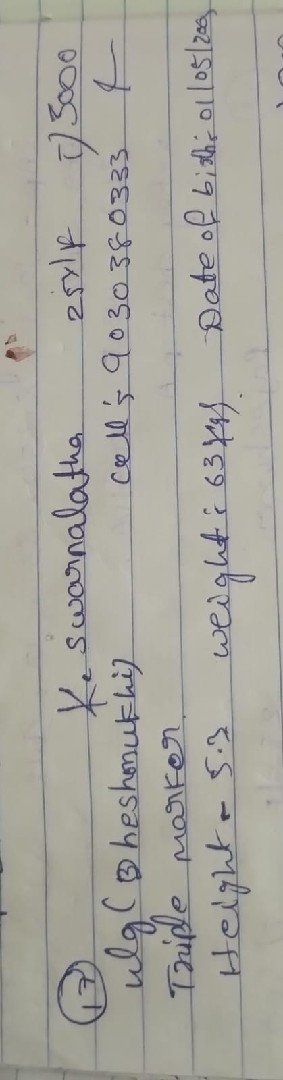 (17) K. Swarnalatha 25Y/F i) 3000
ulg (Bheshmukhi) cell; 9030380333
Triple marker
Height - 5.3 weight: 63 kgs. Date of bith: 01/05/200